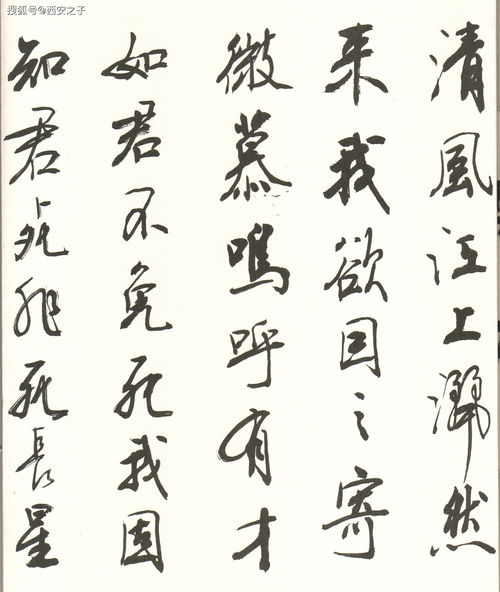 搜狐号@西安之子
清風江上灑然
来我欲因之寄
微慕嗚呼有才
如君不免死我固
知君死非死長星